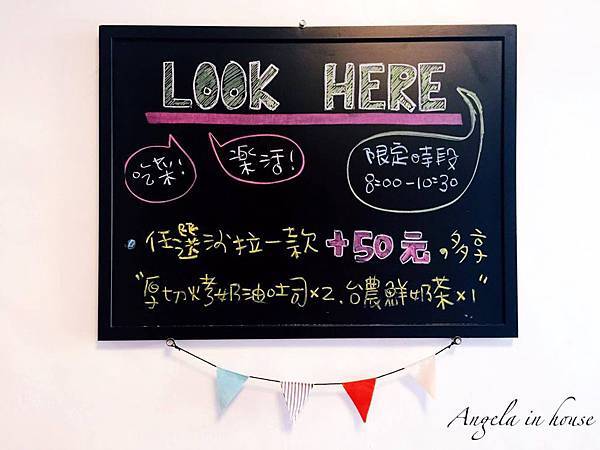 LOOK HERE
吃菜!
樂活!
限定時段
8:00-10:30
任選沙拉一款+50元。多享
"厚切烤奶油吐司×2、台農鮮奶茶×1"
Angela in house